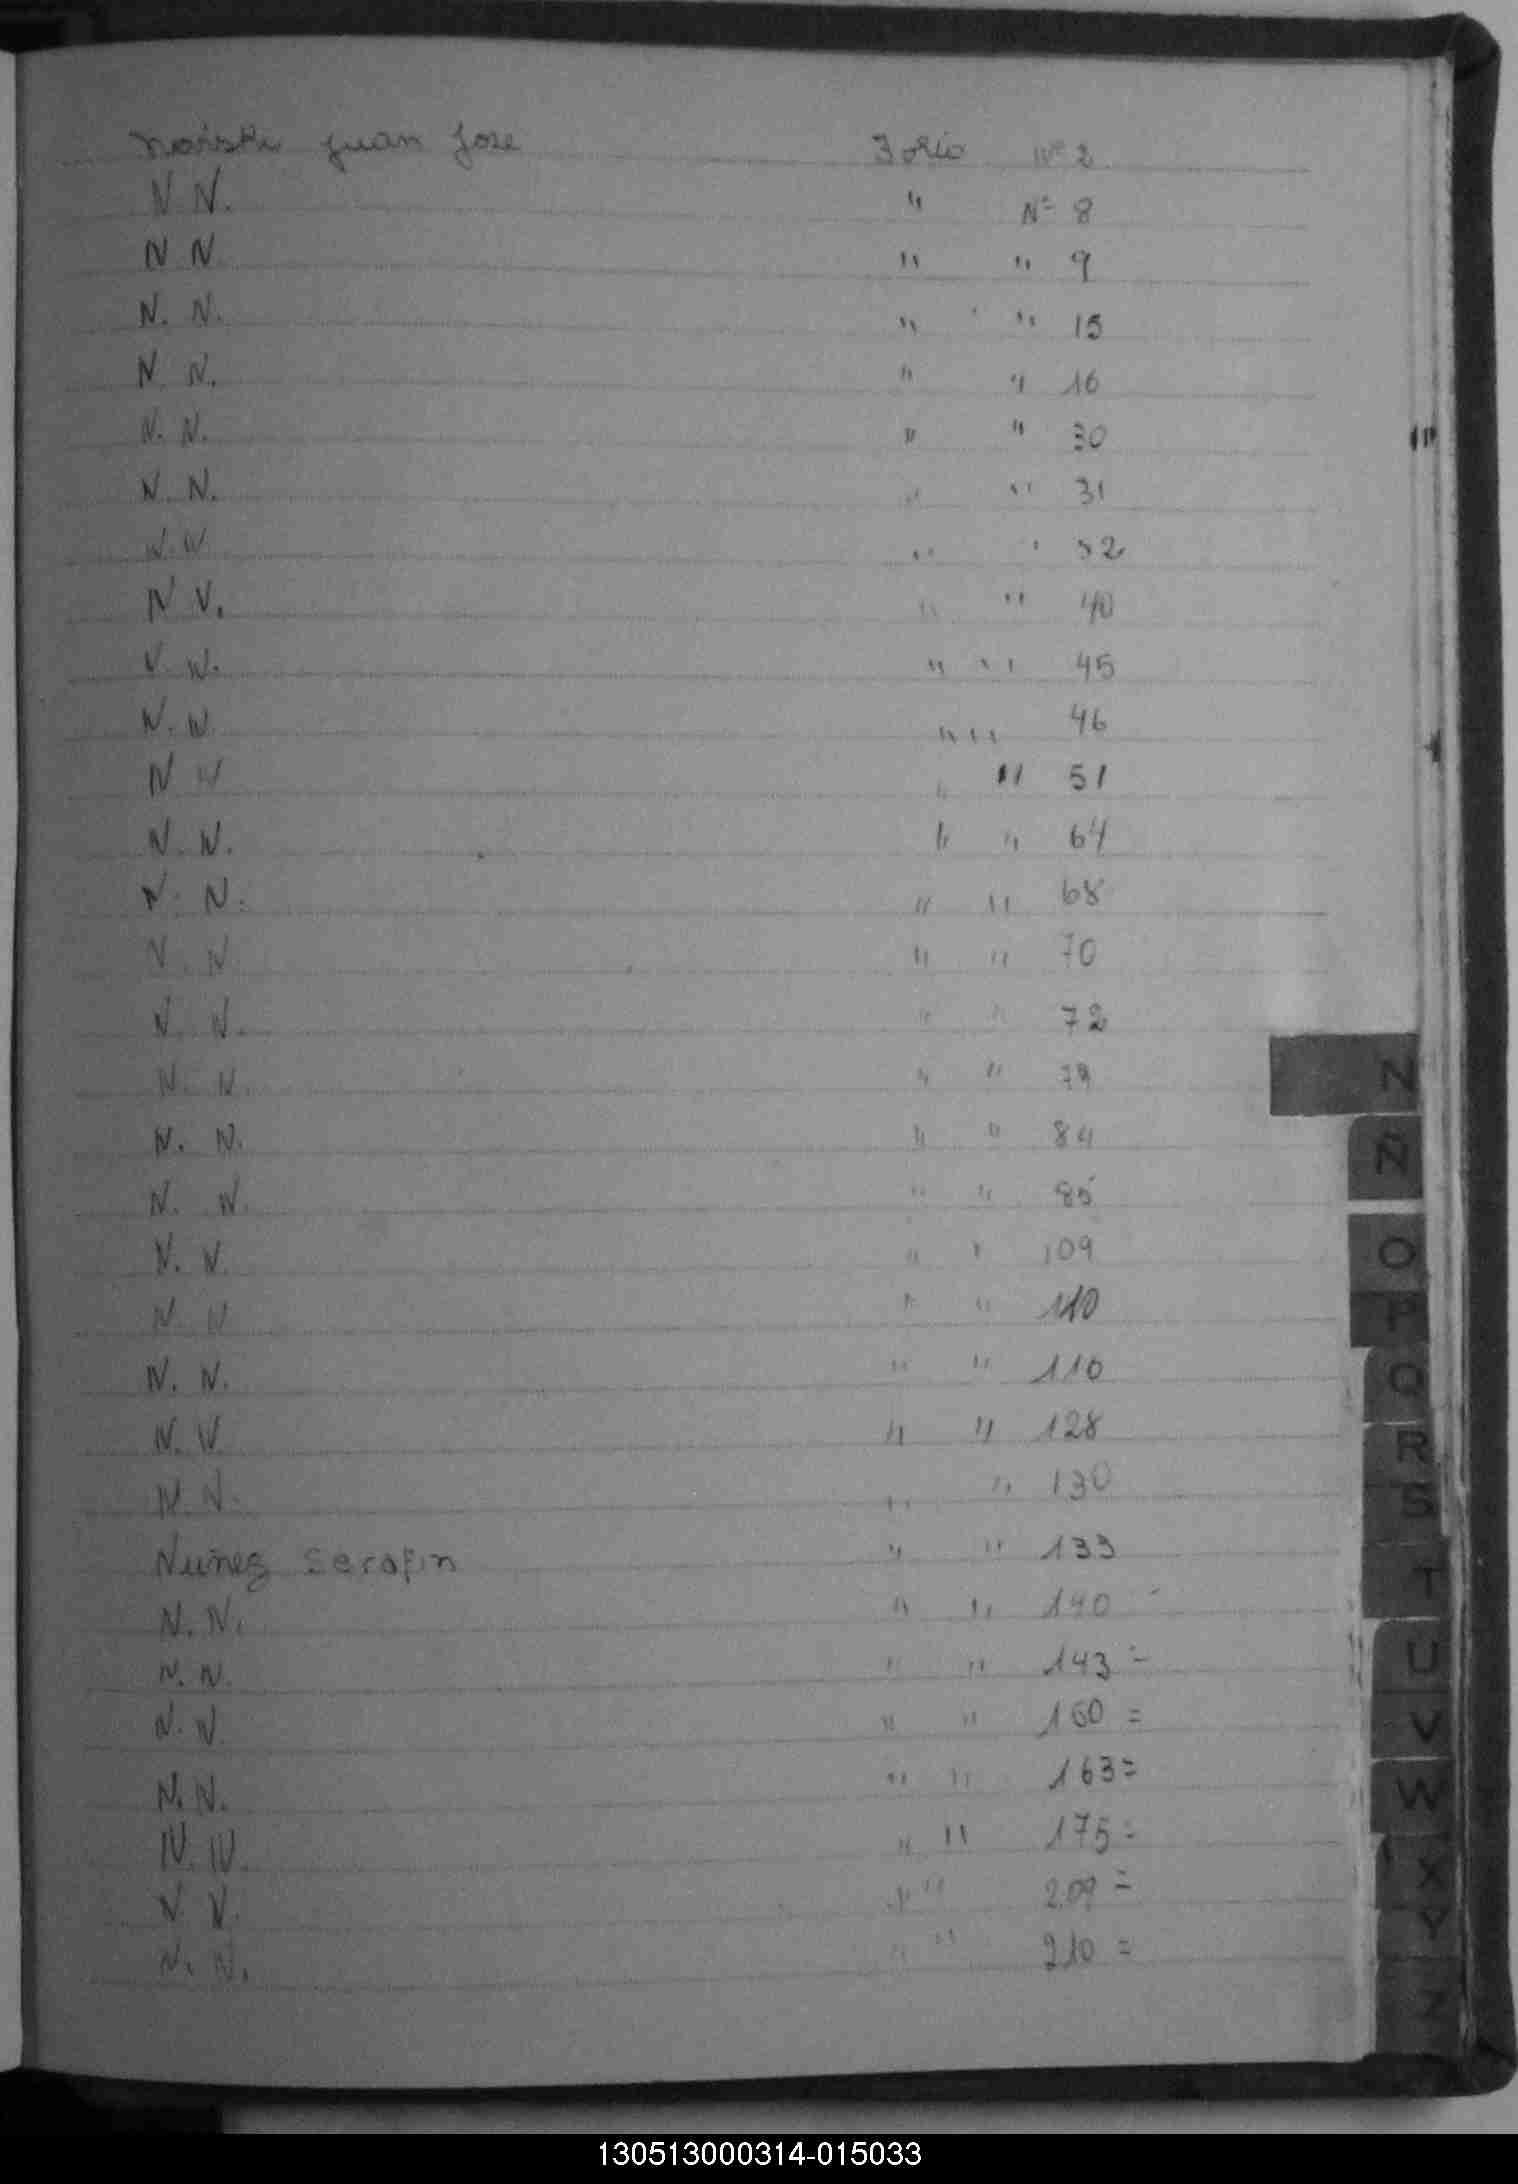 Juan Jose Folio Nº 2
N N. " Nº 8
N N. " " 9
N. N. " " 15
N. N. " " 16
N. N. " " 30
N. N. " " 31
N.N. " " 32
N N. " " 40
N. N. " " 45
N. N. " " 46
N N " " 51
N. N. " " 64
N. N. " " 68
N. N " " 70
N. N. " " 72
N. N. " " 79
N. N. " " 84
N. N. " " 85
N. N. " " 109
N. N " " 110
N. N. " " 110
N. N. " " 128
N. N. " " 130
Nuñez Serafin " " 133
N. N. " " 140 -
N. N. " " 143 =
N. N. " " 160 =
N. N. " " 163 =
N. N. " " 175 =
N. N. " " 209 =
N. N. " " 210 =
N
Ñ
O
P
Q
R
S
T
U
V
W
X
Y
Z
130513000314-015033